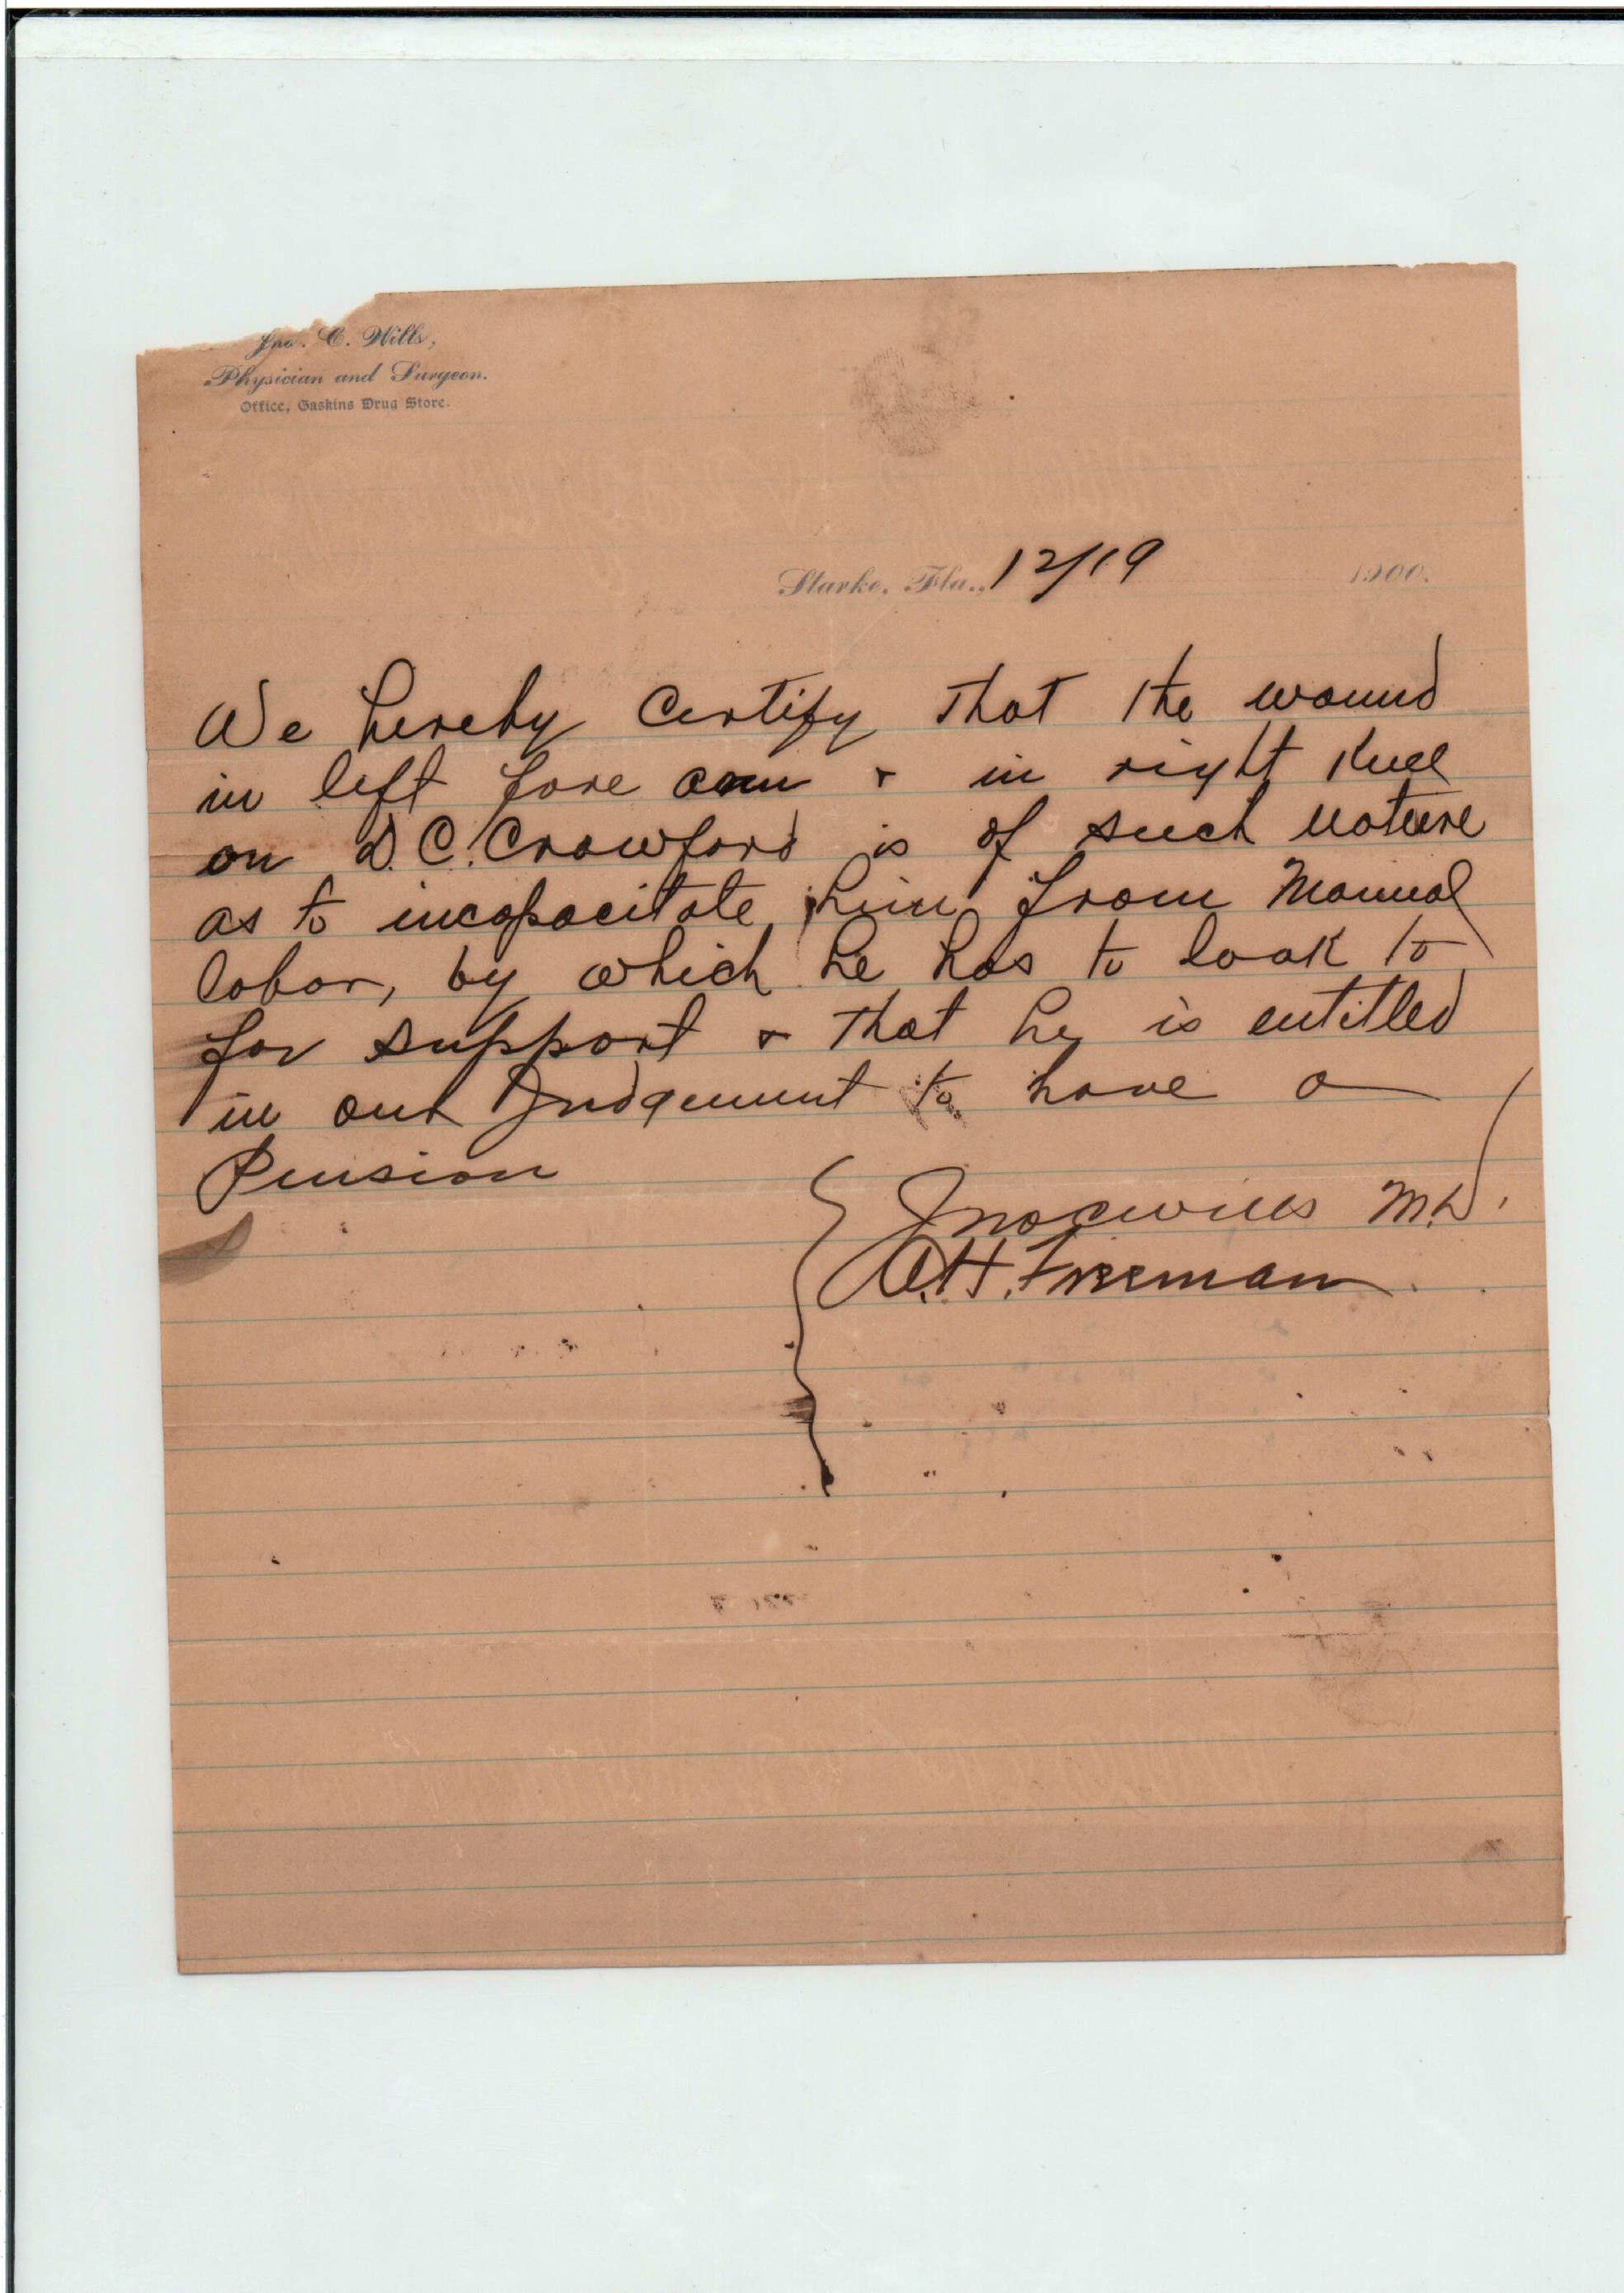 Jno. C. Wills,
Physician and Surgeon.
Office, Gaskins Drug Store.
Starke, Fla., 12/19 1900.
We hereby certify that the wound
in left fore arm & in right Knee
on D. C. Crawford is of such nature
as to incapacitate him from Manual
labor, by which he has to look to
for support & that he is entitled
in our Judgement to have a
Pension
Jno C Wills M.D.
A. H. Freeman